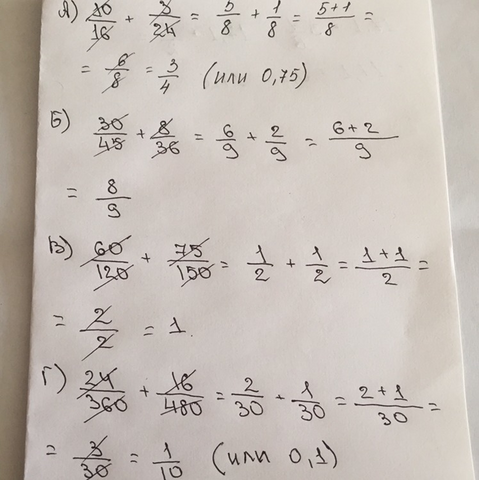 А) 10/16 + 3/24 = 5/8 + 1/8 = 5+1/8 =
= 6/8 = 3/4 (или 0,75)
Б) 30/45 + 8/36 = 6/9 + 2/9 = 6+2/9
= 8/9
В) 60/120 + 75/150 = 1/2 + 1/2 = 1+1/2 =
= 2/2 = 1.
Г) 24/360 + 16/480 = 2/30 + 1/30 = 2+1/30 =
= 3/30 = 1/10 (или 0,1)